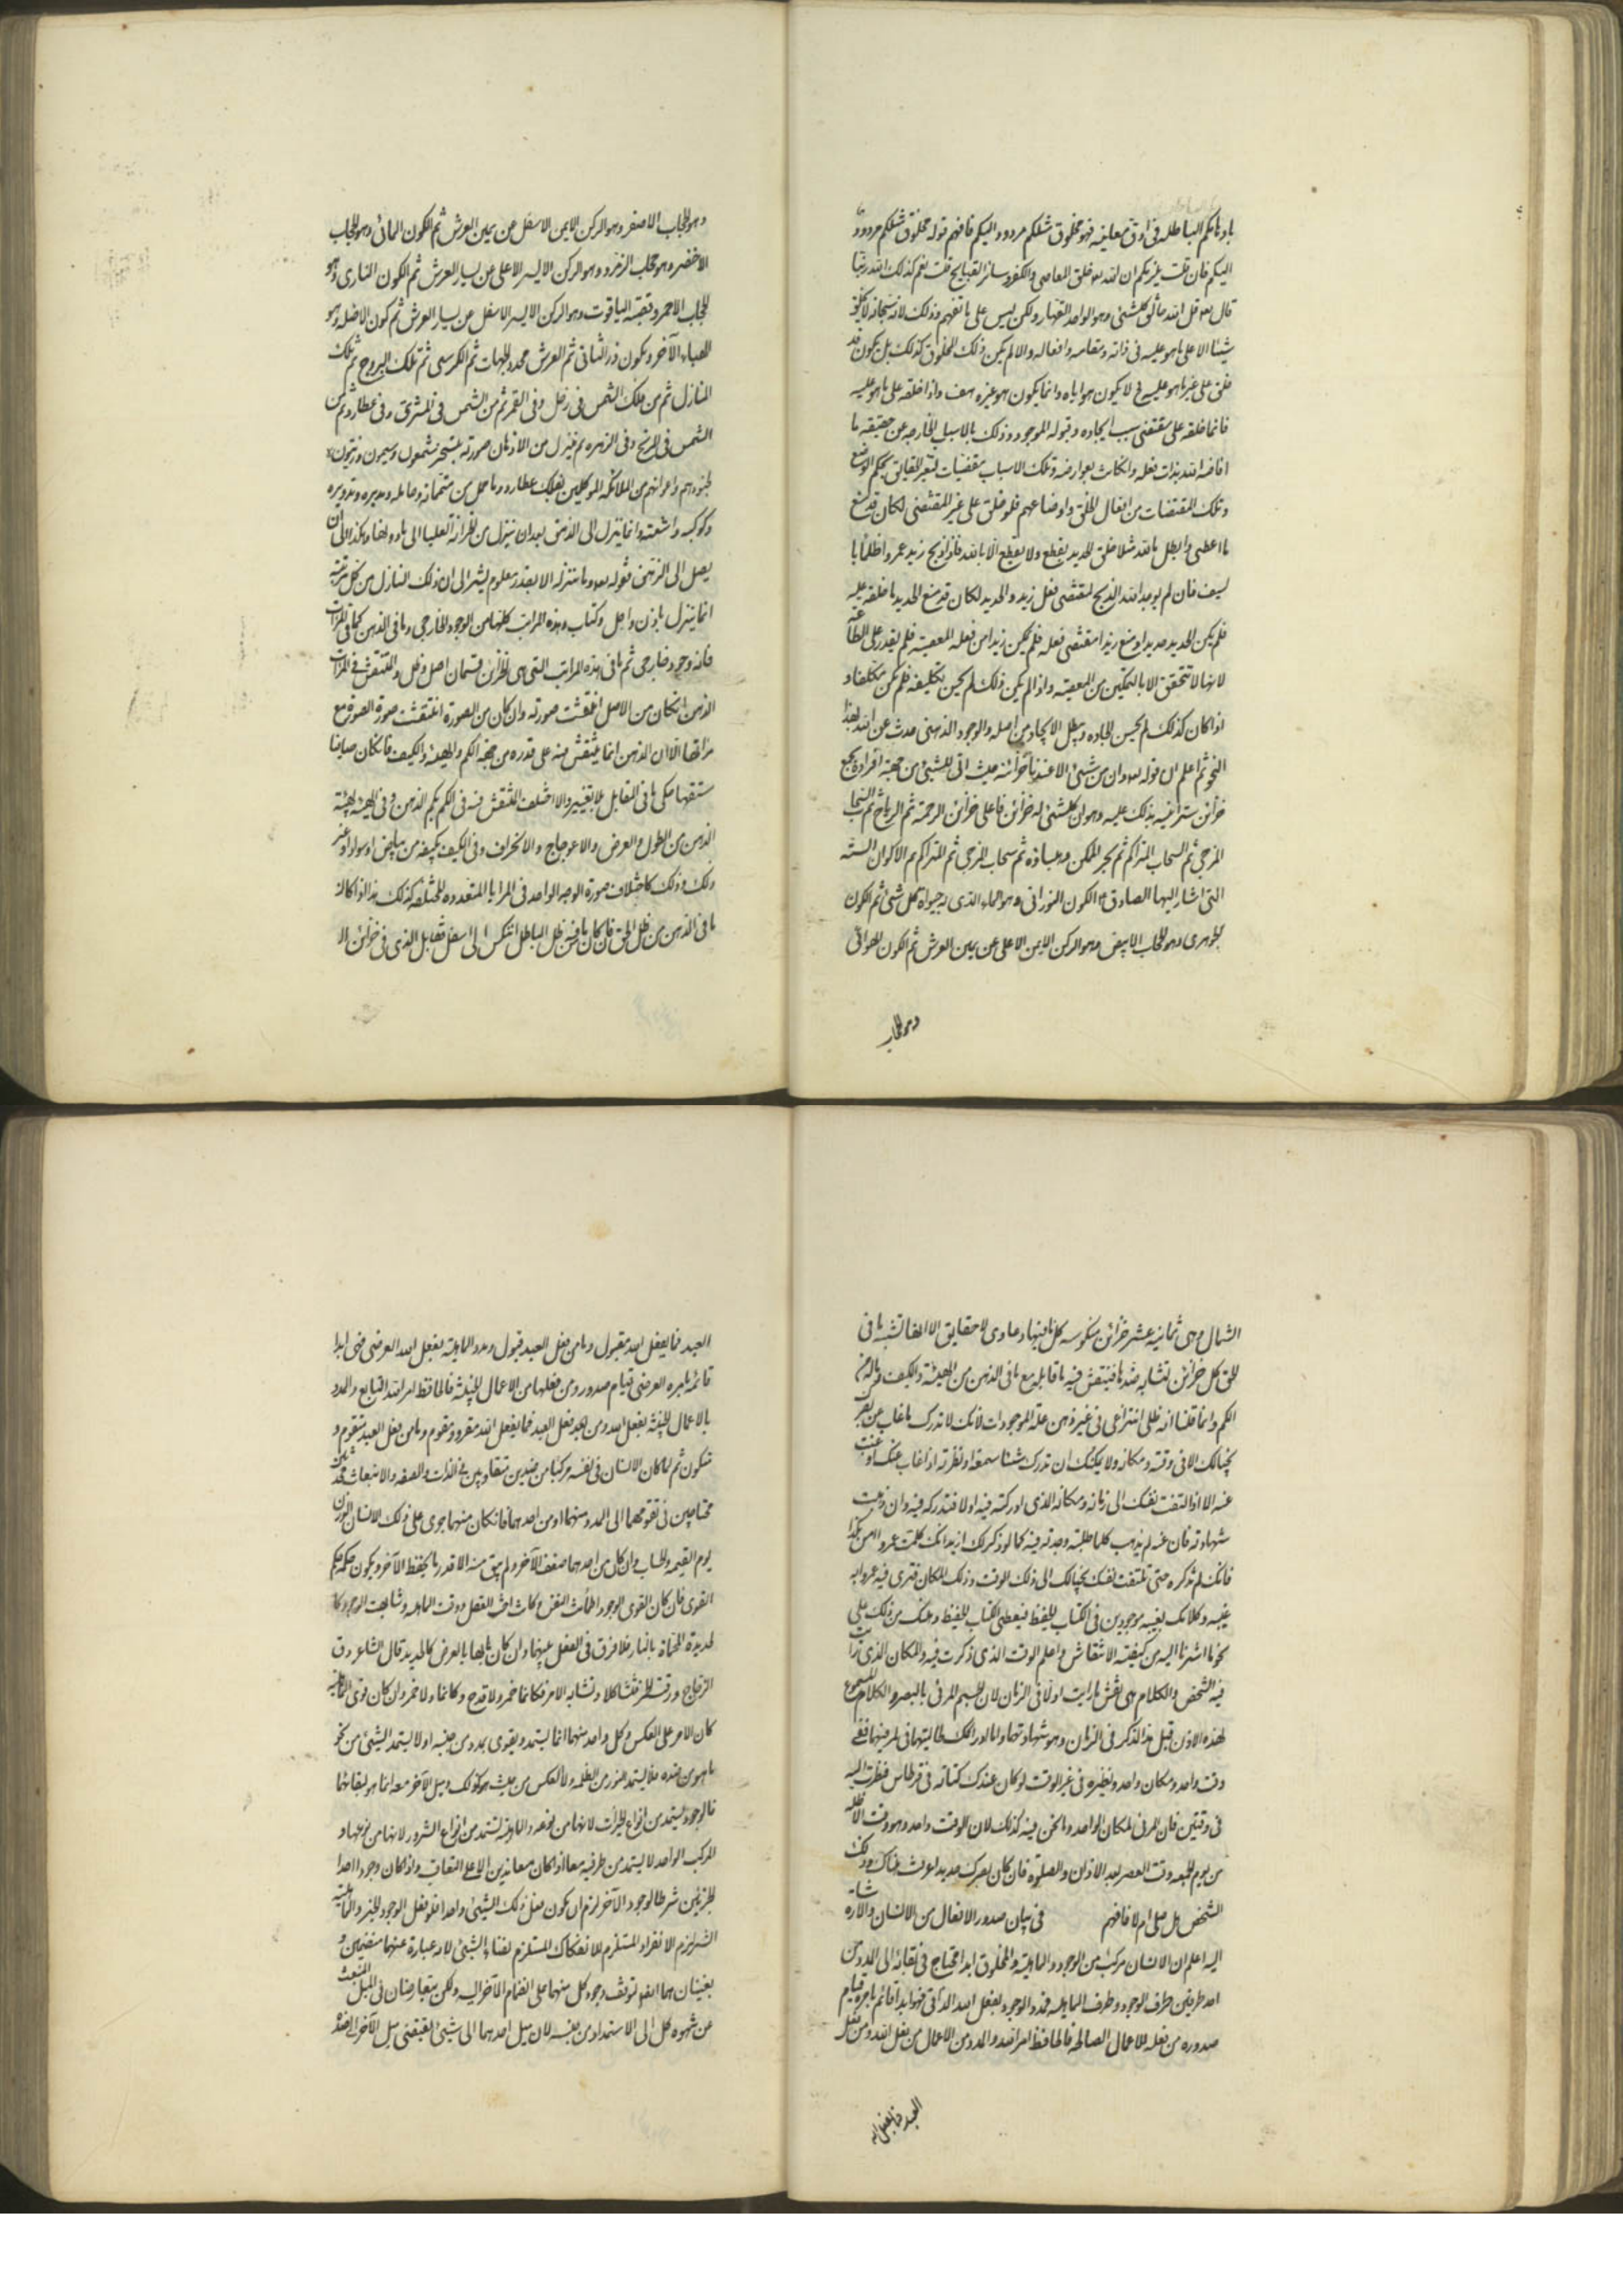 باوهامكم الباطله فی ادق معانیه فهو مخلوق مثلكم مردود الیكم فافهم قوله مخلوق مثلكم مردود
الیكم فان قلت یلزمكم ان الله خلق المعاصی والكفر وسائر القبایح قلت نعم كذلك الله ربنا
قال قل الله خالق كلشئی وهو الواحد القهار ولكن لیس علی ما تفهم وذلك لانه سبحانه لا یخلق
شیئا الا علی ما هو علیه فی ذاته وصفاته وافعاله والا لم یكن ذلك المخلوق كذلك بل یكون قد
خلق علی غیر ما هو علیه فح لا یكون هو ایاه وانما یكون هو غیره هف واذا خلقه علی ما هو علیه
فانما خلقه علی مقتضی سبب ایجاده وقبوله للوجود وذلك بالاسباب الخارجه عن حقیقه ما
افاضه الله بذات فعله وانكانت بعوارضه وتلك الاسباب مقتضیات لتغیر الحقایق بحكم الوضع
وتلك المقتضیات من افعال الخلق واوضاعهم فلو خلق علی غیر المقتضی لكان قد منع
ما اعطی وابطل ما الله مثلا خلق الحدید یقطع ولا یقطع الا بالله فاذا ذبح زید عمروا ظلما با
لسیف فان لم یوجد الله الذبح بمقتضی فعل زید والحدید لكان قد منع الحدید ما خلقه علیه
فلم یكن الحدید حدیدا ومنع زیدا مقتضی فعله فلم یكن زیدا من فعله المعصیه فلم یقدر علی الطاعة
لانها لا تتحقق الا بالتمكین من المعصیه واذا لم یكن ذلك لم یحسن تكلیفه فلم یكن مكلفا و
اذا كان كذلك لم یحسن ایجاده وبطل الایجاد من اصله والوجود الذهنی حدث عن الله بهذا
النحو ثم اعلم ان قوله وان من شئی الا عندنا خزائنه حیث اتی للشئی من جهة افراده بجمع
خزائن ستراعیه بذلك علیه وهو ان كلشئی له خزائن فاعلی خزائن الرحمة ثم الریاح ثم السحاب
المزجی ثم السحاب المتراكم ثم بحر الممكن ثم سحاب المزجی ثم المتراكم ثم الاكوان السته
التی اشار الیها الصادق ع الكون النورانی وهو الماء الذی به حیوة كل شئی ثم الكون
الجوهری وهو الحجاب الابیض وهو الركن الایمن الاعلی عن یمین العرش ثم الكون الهوائی
وهو الحجاب
وهو الحجاب الاصفر وهو الركن الایمن الاسفل عن یمین العرش ثم الكون المائی وهو الحجاب
الاخضر وهو حجاب الزمرد وهو الركن الایسر الاعلی عن یسار العرش ثم الكون الناری وهو
الحجاب الاحمر وقصبة الیاقوت وهو الركن الایسر الاسفل عن یسار العرش ثم كون الاظله وهو
الهباء الآخر ویكون ذر الثانی ثم العرش محدد الجهات ثم الكرسی ثم فلك البروج ثم فلك
المنازل ثم من فلك الشمس فی زحل وفی القمر ثم من الشمس فی المشتری وفی عطارد ثم من
الشمس فی المریخ وفی الزهره ثم ینزل من الاذهان صورته یستجر شمعون وسیمون وزیتون و
جنودهم واعوانهم من الملائكة الموكلین بفلك عطارد وما حمل من متمماته وحامله ومدیره وتدویره
وكوكبه واشعته وانما ینزل الی الذهن بعد ان ینزل من الخزانة العلیا الی ما دونها وهكذا الی ان
یصل الی الذهن فقوله وما ننزله الا بقدر معلوم یشیر الی ان ذلك النازل من كل مرتبة
انما ینزل باذن واجل وكتاب وهذه المراتب كلها من الوجود الخارجی وما فی الذهن كما فی المرآت
فانه وجود خارجی ثم ما فی هذه المراتب التی هی الخزائن قسمان اصل وظل والمنتقش فی المرآت
الذهن انكان من الاصل انتقشت صورته وان كان من الصورة انتقشت صورة الصورة مع
مرآتها الا ان الذهن انما ینتقش فیه علی قدره من جهة الكم والهیئة والكیف فانكان صافیا
مستقیما حكی ما فی المقابل بلا تغییر والا اختلف المنتقش فیه فی الكم بكم الذهن وفی الهیئة بهیئة
الذهن من الطول والعرض والاعوجاج والانحراف وفی الكیف بكیفه من بیاض او سواد او غیر
ذلك وذلك كاختلاف صورة الوجه الواحد فی المرایا المتعدده المختلفة كذلك هذا اذا كان
ما فی الذهن من ظل الحق فان كان ما فیه من ظل الباطل انتكس الی اسفل فقابل الذی فی خزائن الا
الشمال وهی ثمانیة عشر خزائن منكوسه كل ما فیها دعاوی لا حقایق الا انها تشبه ما فی
الحق كل خزائن تشابه ضدها فینتقش فیه ما قابله مع ما فی الذهن من الهیئة والكیف
الكم وانما قلنا انه ظلی انتزاعی فی غیر ذهن علة الموجودات لانك لا تدرك ما غاب عن بصر
بخیالك الا فی وقته ومكانه ولا یمكنك ان تدرك شیئا سمعته او نظرته اذا غاب عنك او غبت
عنه الا اذا التفت نفسك الی زمانه ومكانه الذی ادركته فیه اولا فتدركه فیه وان ذهبت
شهادته فان غیبه لم یذهب كلما طلبته وجدته فیه كما لو ذكر لك ازید انك كلمت عمروا امس بكذا
فانك لم تذكره حتی تلتفت نفسك بخیالك الی ذلك الوقت وذلك المكان فتری فیه عمروا به
غیبه وكلامك بغیبه موجودین فی الكتاب الحفیظ فیعطی الكتاب الحفیظ ذهنك من ذلك علی
نحو ما اشرنا الیه من كیفیة الانتقاش واعلم الوقت الذی ذكرت فیه والمكان الذی رأیت
فیه الشخص والكلام هی نفس ما رأیت اولا فی الزمان لان الجسم المرئی بالبصر والكلام المسموع
لهذه الاذن قبل هذا الذكر فی الزمان وهو شهادتهما واما ادراكك طالبتهما فی لمر منهما ففی
وقت واحد ومكان واحد ونظیره فی غیر الوقت لو كان عندك كتابة فی قرطاس فنظرت الیه
فی وقتین فان المرئی المكان الواحد وما نحن فیه كذلك لان الوقت واحد وهو وقت الاظلة
من یوم الجمعه وقت العصر بعد الاذان والصلوة فان كان بصرك حدیدا عرفت هناك ذلك
الشخص هل صلی ام لا فافهم فی بیان صدور الافعال من الانسان والاشارة
الیه اعلم ان الانسان مركب من الوجود والماهیة والمخلوق ابدا محتاج فی بقائه الی المدد من
احد طرفین طرف الوجود وطرف الماهیة فمدد الوجود بفعل الله الذاتی فهو ابدا قائم بامره قیام
صدور ومن فعله للاعمال الصالحة فالحافظ امر الله والمدد من الاعمال من فعل الله ومن فعل
العبد فما بفعل الله
العبد فما بفعل الله مقبول وما من فعل العبد قبول ومدد الماهیة بفعل الله العرضی فهی ابدا
قائمة بامره العرضی قیام صدور ومن فعلها من الاعمال الخبیثة فالحافظ امر الله التابع والمدد
بالاعمال الخبیثة بفعل الله ومن العبد فعل العبد فما بفعل الله مقرر ومقوم وما من فعل العبد متقوم و
متكون ثم لما كان الانسان فی نفسه مركبا من ضدین متعاندین فی الذات والصفه والانبعاث فمد
محتاجین فی تقومهما الی المدد منهما او من احدهما فانكان منهما جری علی ذلك الانسان الوزن
یوم القیمه والحساب وان كان من احدهما ضعف الآخر ولم یبق منه الا قدر ما یحفظ الآخر ویكون حكمه حكم
القوی فان كان القوی الوجود اطمأنت النفس وكانت اخت العقل ورقت الماهیة وشابهت الوجود كا
لحدیدة المحماة بالنار فلا فرق فی الفعل بینهما وان كان بها بالعرض كالحدید قال الشاعر رق
الزجاج ورقت الخمر فتشاكلا وتشابه الامر فكانما خمر ولا قدح وكانما قدح ولا خمر وان كان قوی الماهیة
كان الامر علی العكس وكل واحد منهما انما یستمد ویقوی بمدد من جنسه او لا یستمد الشئی من نحو
ما هو من ضده فلا یستمد النور من الظلمة ولا العكس من حیث هو كذلك ومیل الآخر معه انما هو لبقائهما
فالوجود یستمد من انواع الخیرات لانها من نوعه والماهیة تستمد من انواع الشرور لانها من نوعها و
المركب الواحد لا یستمد من طرفیه معا اذا كان متعاندین الا علی التعاقب واذا كان وجود احد ا
لجزئین شرطا لوجود الآخر لزم ان یكون فعل ذلك الشئی واحدا فلو فعل الوجود الخیر والماهیة
الشر لزم الانفراد المستلزم للانفكاك المستلزم لفناء الشئی لانه عبارة عنهما منضمین و
یفنیان هما ایضا لتوقف وجود كل منهما علی انضمام الآخر الیه ولكن یتعارضان فی المیل المنبعث
عن شهوة كل الی الاستمداد من جنسه لان میل احدهما الی شئی یقتضی میل الآخر الی ضده